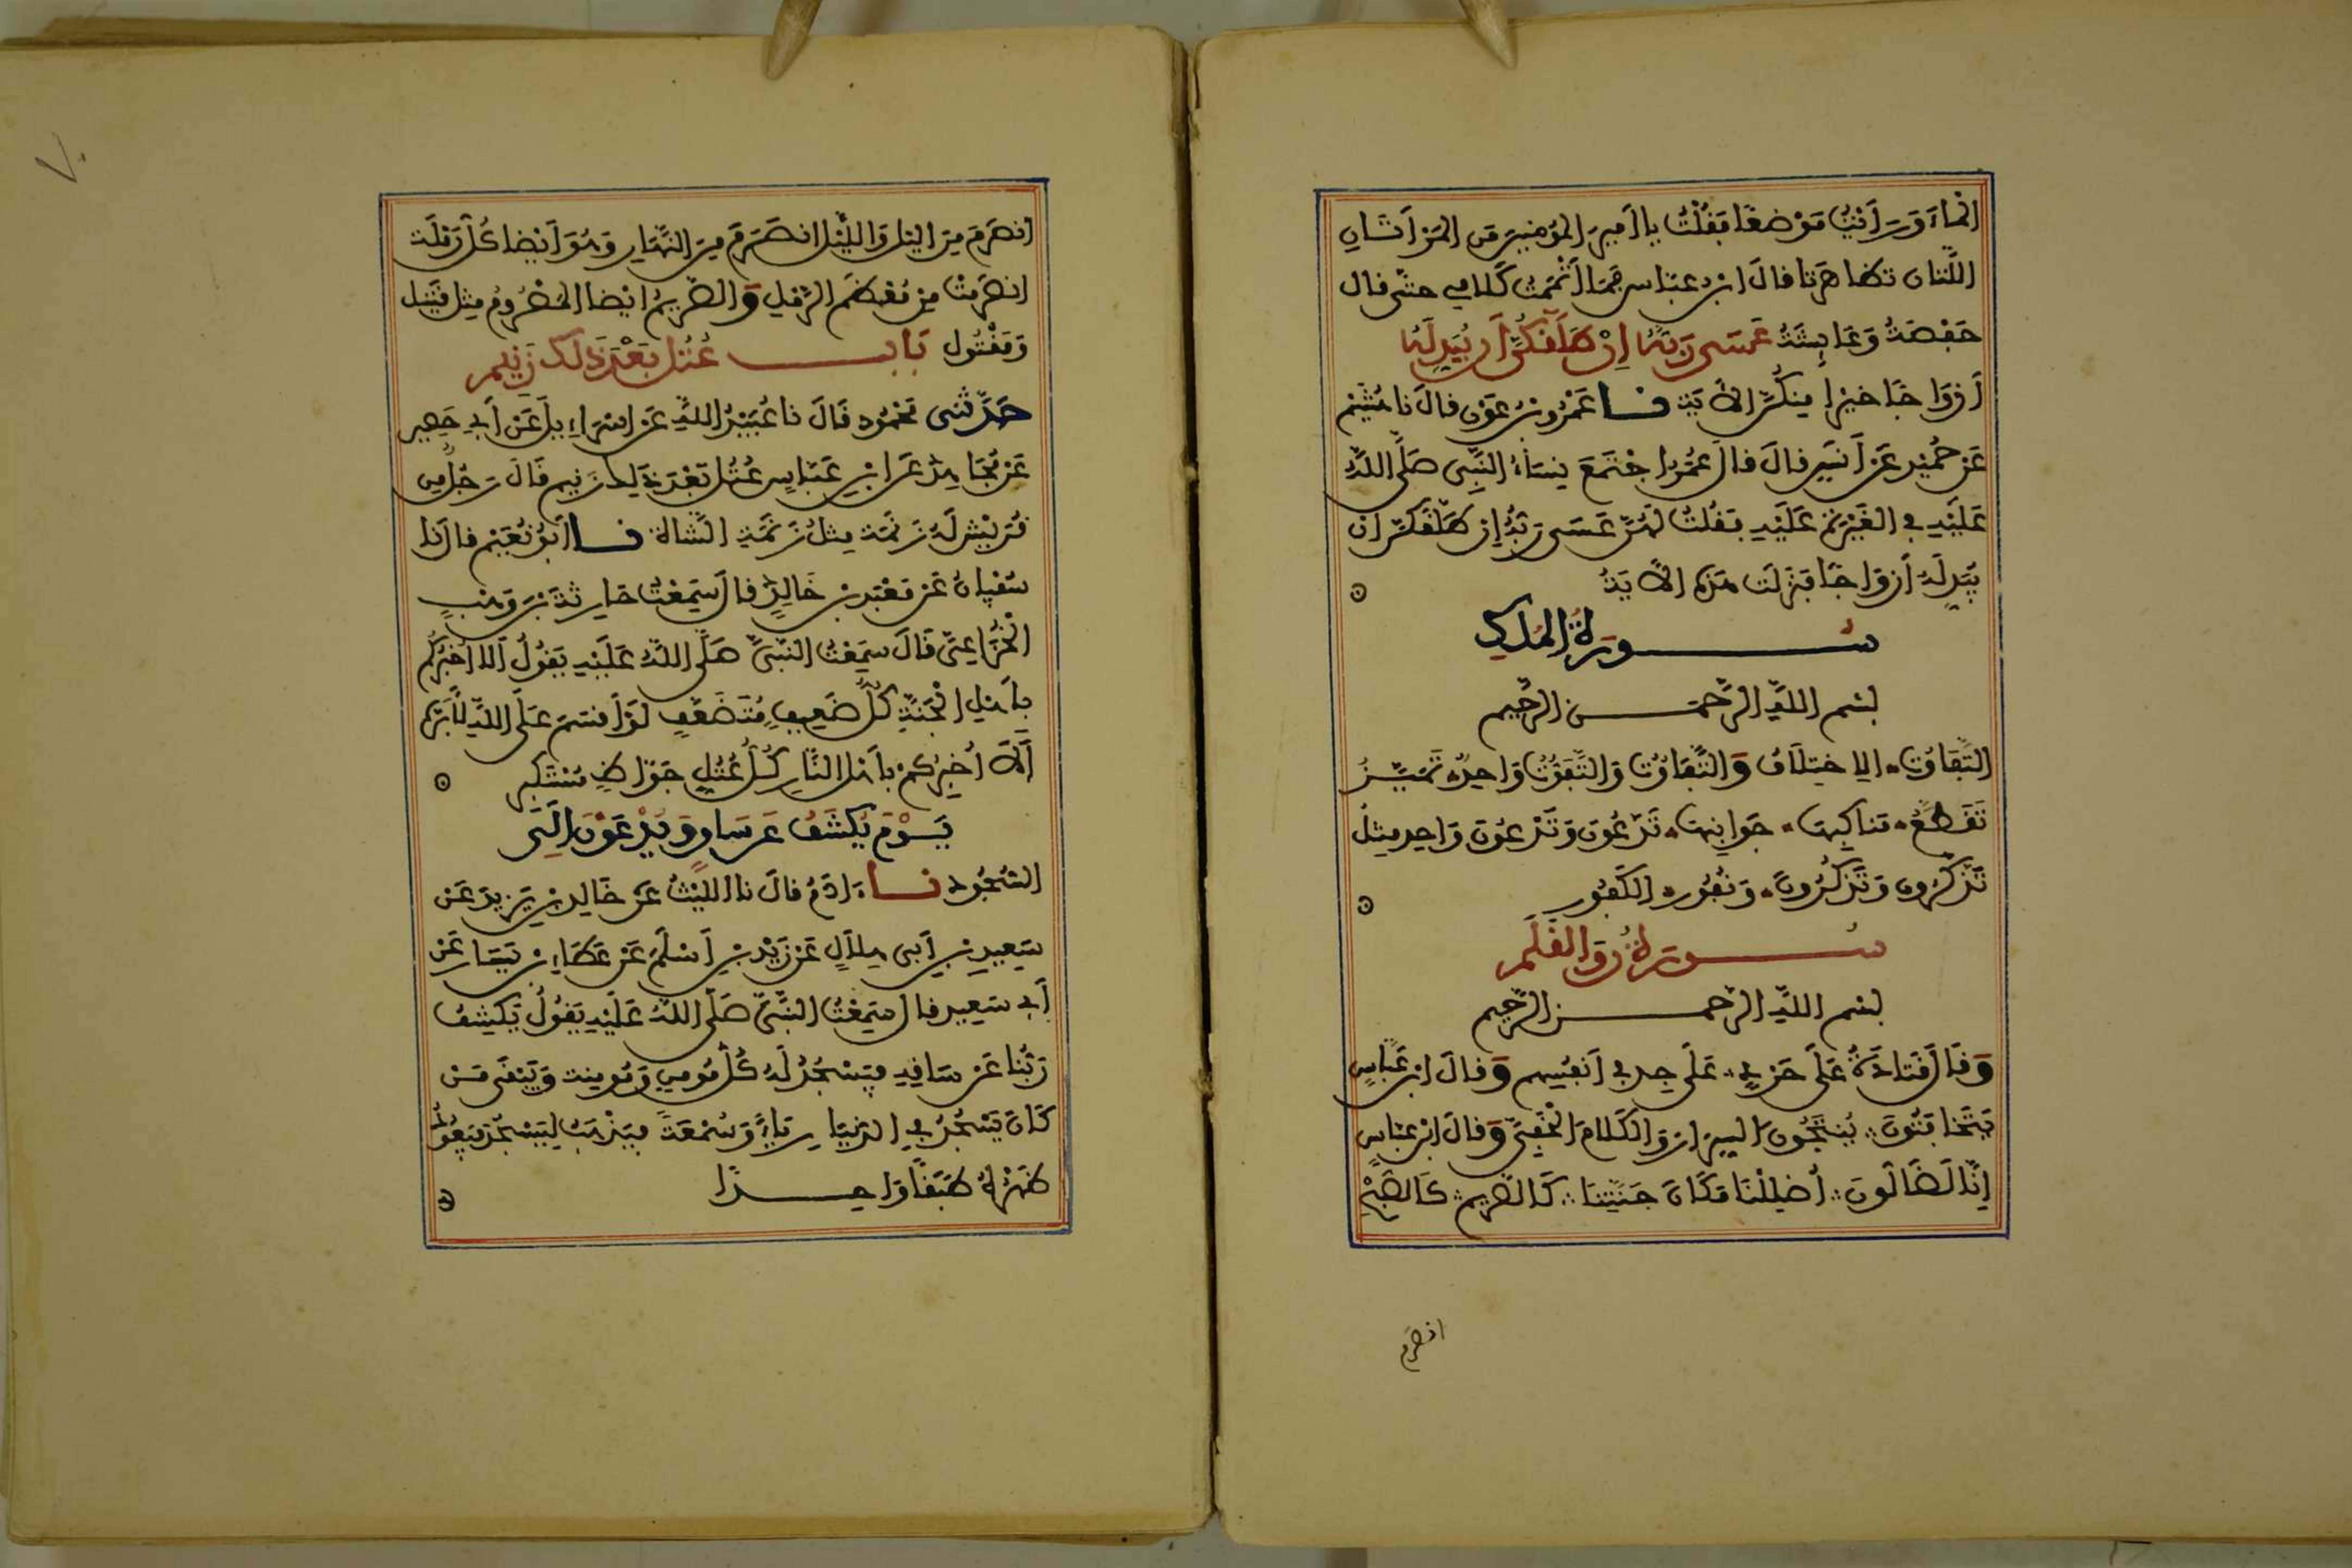 الماءَ وَرَأَيْتُ مَوْضِعًا فَقُلْتُ يا أَمِيرَ المُؤمِنِينَ مَنِ المَرْأَتَانِ
اللَّتَانِ تَظَاهَرَتَا قالَ ابنُ عبّاسٍ فَمَا أَتْمَمْتُ كَلامِي حتّى قال
حَفْصَةُ وَعَايِشَةُ عَسَى رَبُّهُ إِنْ طَلَّقَكُنَّ أَن يُبَدِّلَهُ
أَزْوَاجًا خَيْرًا مِنكُنَّ الآيَة نا عَمْرُو بْنُ عَوْنٍ قالَ نا هُشَيْم
عَنْ حُمَيْدٍ عَنْ أَنَسٍ قالَ قالَ عُمَرُ اجْتَمَعَ نِسَاءُ النَّبِّي صَلَّى اللَّهُ
عَلَيْهِ فِي الغَيْرَةِ عَلَيْهِ فَقُلتُ لَهُنَّ عَسَى رَبُّهُ إِن طَلَّقَكُنَّ ان
يُبَدِّلَهُ أَزْوَاجًا فَنَزَلَت هَذِهِ الآيَةُ
سُورَةُ المُلْكِ
بسْم اللَّهِ الرَّحْمَنِ الرَّحِيم
التَّفَاوُت الاِخْتِلَافُ وَالتَّفَاوُتُ وَالتَّفَوُّتُ وَاحِدٌ تَمَيَّزُ
تَقَطَّعُ مَنَاكِبِهَا جَوَانِبِهَا تَدَّعُونَ وَتَدْعُونَ وَاحِد مِثْلُ
تَذَّكَّرُونَ وَتَذْكُرُونَ وَنُفُورٍ الكُفُورِ
سُورَةُ ن وَالقَلَمِ
بسْم اللَّهِ الرَّحمنِ الرَّحِيم
وَقَالَ قَتَادَةُ عَلَى حَرْدٍ عَلَى جِدٍّ فِي أَنفُسِهِم وَقالَ ابن عَبَّاسٍ
يَتَخَافَتُونَ يَنتَجُونَ السِّرَارَ وَالكَلَامَ الْخَفِيَّ وَقالَ ابْن عبّاس
إِنَّا لَضَالُّونَ أَضْلَلْنَا مَكَانَ جَنَّتِنَا كَالصَّرِيمِ كَالصُّبْحِ
انصَرَم
انصَرَمَ مِنَ اليْلِ وَاللَّيْلِ انصَرَمَ مِنَ النَّهَارِ وَهُوَ أَيْضًا كُلُّ رَمْلَةٍ
انصَرَمَتْ مِنْ مُعْظَمِ الرَّمْلِ وَالصَّرِيمُ ايْضًا المَصْرُومُ مِثْل قَتِيل
وَمَقْتُول بَابُ عُتُلٍّ بَعْدَ ذَلِكَ زَنِيمٍ
حَدَّثَنِي مَحْمُود قَالَ نا عُبَيْدُ اللَّهِ عَن اِسْرَاءِيلَ عَنْ أَبِي حَصِينٍ
عَنْ مُجَاهِدٍ عَنِ ابْنِ عَبَّاسٍ عُتُلٍّ بَعْدَ ذَلِكَ زَنِيم قَالَ رَجُلٌ مِن
قُرَيْشٍ لَهُ زَنَمَة مِثلُ زَنَمَةِ الشَّاة نا أَبُو نُعَيْمٍ قالَ نا
سُفْيَانُ عَنْ مَعْبَدِ بْنِ خَالِدٍ قالَ سَمِعْتُ حَارِثَةَ بْنَ وَهْبٍ
الْخُزَاعِيَّ قَالَ سَمِعْتُ النَّبِيَّ صَلَّى اللَّهُ عَلَيْهِ يَقُولُ أَلَا اُخْبِرُكُمْ
بِأَهْلِ الْجَنَّةِ كُلُّ ضَعِيفٍ مُتَضَعِّفٍ لَوْ أَقْسَمَ عَلَى اللَّهِ لَأَبَرَّهُ
أَلَا أُخبِرُكُمْ بِأَهْلِ النَّارِ كُلُّ عُتُلٍّ جَوَّاظٍ مُسْتَكْبِرٍ
يَوْمَ يُكْشَفُ عَن سَاقٍ وَيُدْعَوْنَ إِلَى
السُّجُودِ نا ءَادَمُ قالَ نا اللَّيْثُ عَن خَالِدِ بْنِ يَزِيدَ عَنْ
سَعِيدِ بْنِ أَبِي هِلَالٍ عَنْ زَيْدِ بْنِ أَسْلَمَ عَنْ عَطَاءِ بْنِ يَسَارٍ عَنْ
أَبِي سَعِيدٍ قالَ سَمِعْتُ النَّبِيَّ صَلَّى اللَّهُ عَلَيْهِ يَقُولُ يَكْشِفُ
رَبُّنَا عَنْ سَاقِهِ فَيَسْجُدُ لَهُ كُلُّ مُومِنٍ وَمُومِنَةٍ وَيَبْقَى مَنْ
كَانَ يَسْجُدُ فِي الدُّنْيَا رِيَاءً وَسُمْعَةً فَيَذْهَبُ لِيَسْجُدَ فَيَعُودُ
ظَهْرُهُ طَبَقًا وَاحِدًا